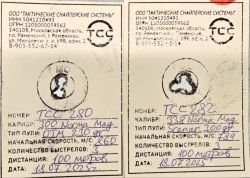 ООО "ТАКТИЧЕСКИЕ СНАЙПЕРСКИЕ СИСТЕМЫ"
ИНН 5041210493
ОГРН 1205000039562
140108, Московская область,
г.о. Раменский, г. Раменское,
8-903-532-67-14
ТСС
НОМЕР: ТСС-280
КАЛИБР: 300 Norma Mag
ТИП ПУЛИ: OTM 230 gr
НАЧАЛЬНАЯ СКОРОСТЬ, М/С 860
КОЛИЧЕСТВО ВЫСТРЕЛОВ: 3
ДИСТАНЦИЯ: 100 метров
18.07.2025г
ООО "ТАКТИЧЕСКИЕ СНАЙПЕРСКИЕ СИСТЕМЫ"
ИНН 5041210493
140108, Московская область,
г.о. Раменский, г. Раменское,
8-903-532-67-14
ТСС
НОМЕР: ТСС-282
КАЛИБР: 338 Norma Mag
ТИП ПУЛИ: Scenar 300 gr
НАЧАЛЬНАЯ СКОРОСТЬ, М/С
КОЛИЧЕСТВО ВЫСТРЕЛОВ: 3
ДИСТАНЦИЯ: 100 метров
18.07.2025